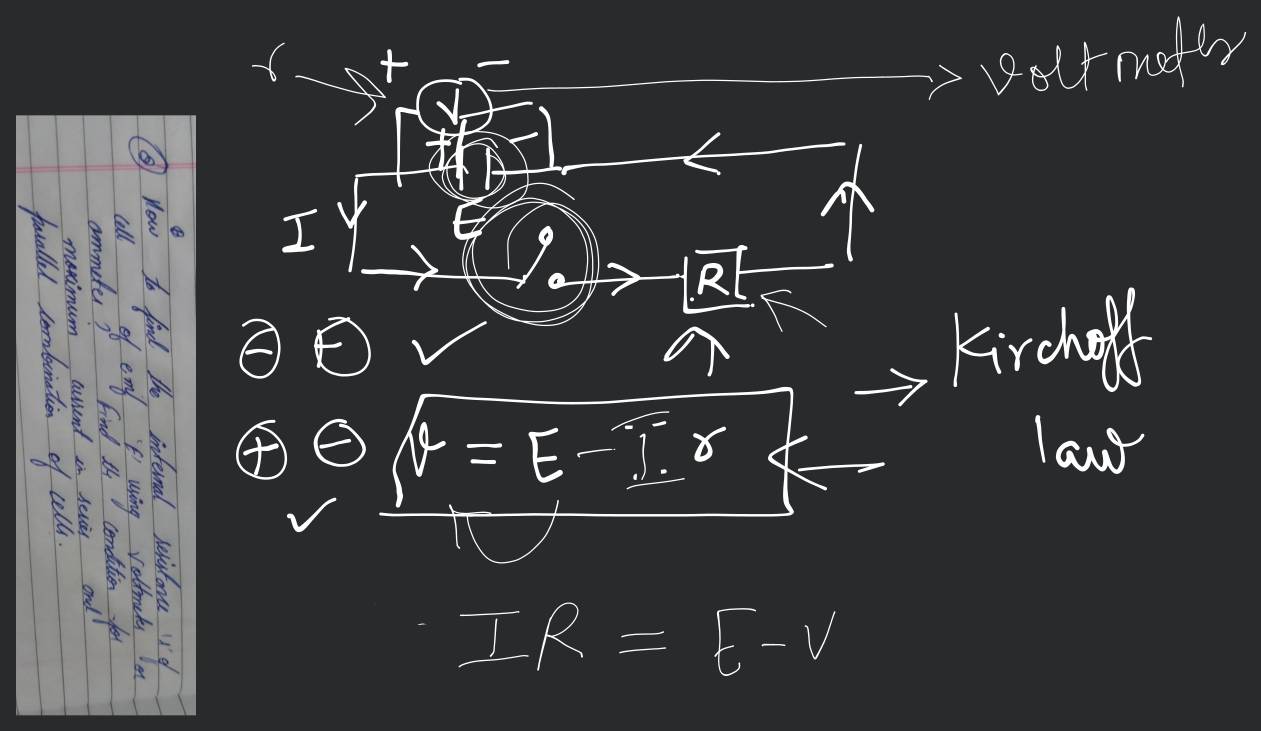 r
+ -
V
voltmeter
+ -
I
E
R
- +
+ -
V = E - I r
Kirchoff
law
IR = E - V
Q How to find the internal resistance 'r' of
cell of emf 'E' using voltmeter or
ammeter? find the condition for
maximum current in series and
parallel combination of cells.